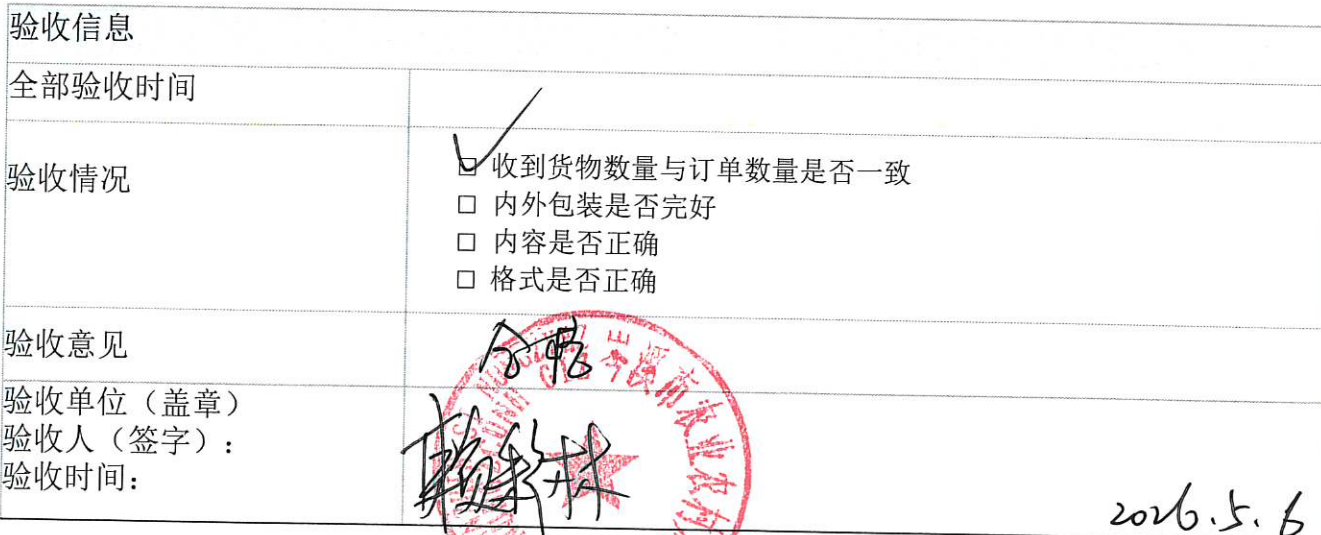 验收信息
全部验收时间
验收情况
☑ 收到货物数量与订单数量是否一致
□ 内外包装是否完好
□ 内容是否正确
□ 格式是否正确
验收意见
合格
岑溪市农业农村
验收单位（盖章）
验收人（签字）：
验收时间：
2026.5.6